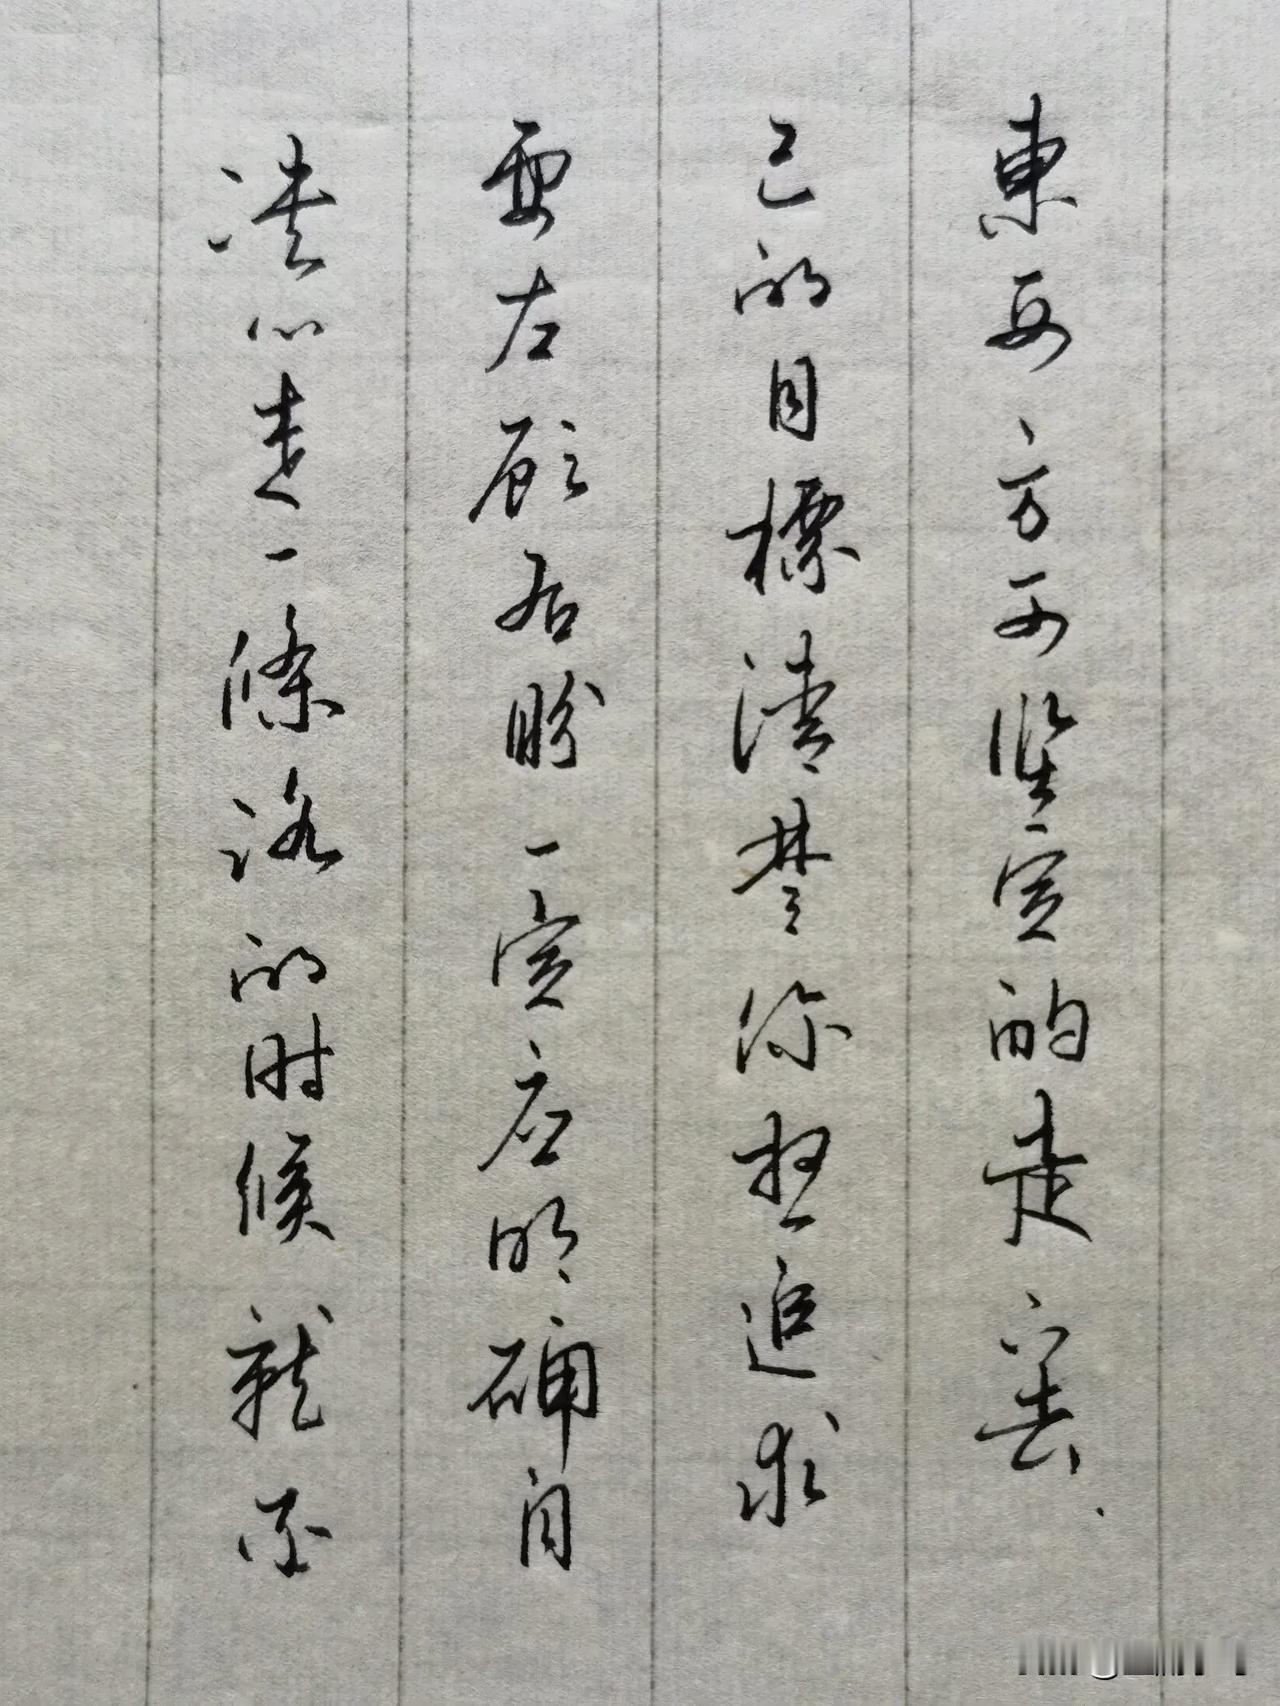 决心走一條路的时候就不
要左顾右盼一定应明确自
己的目標清楚你想追求
東西方可坚定的走下去